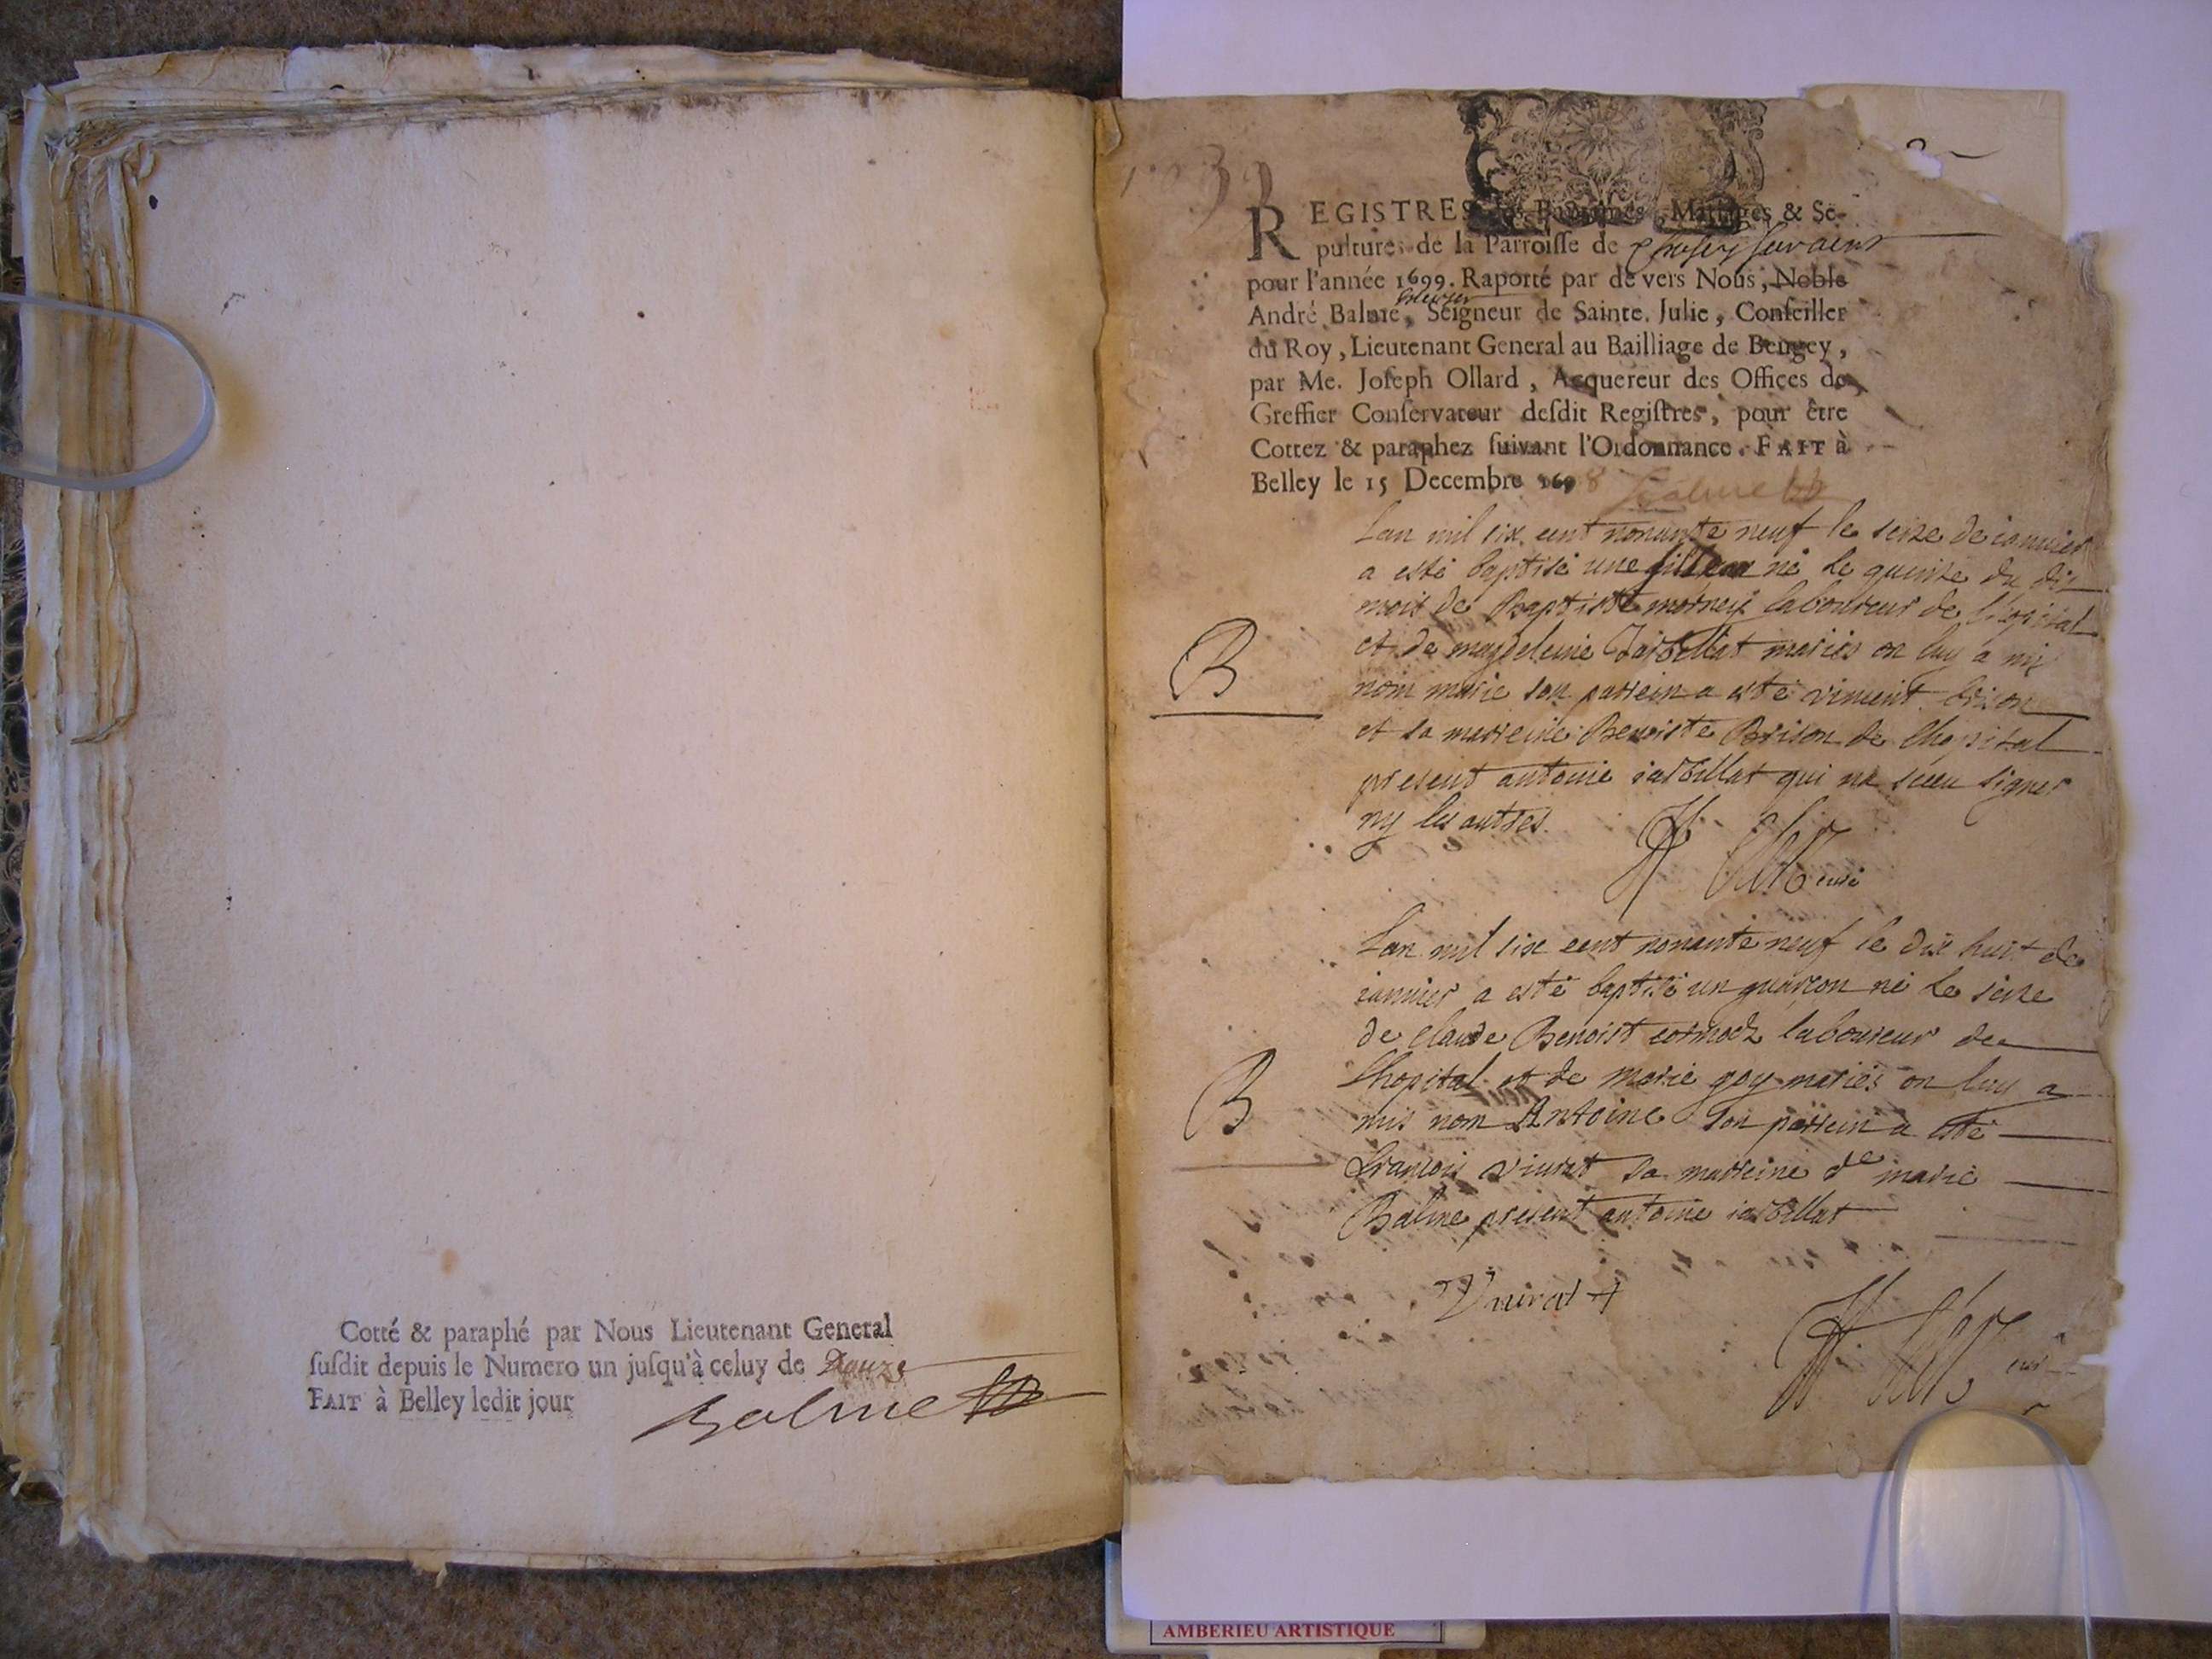 Cotté & paraphé par Nous Lieutenant General
ſuſdit depuis le Numero un juſqu'à celuy de Douze
FAIT à Belley ledit jour
Balme
REGISTRES des Baptêmes, Mariages & Se-
pultures de la Parroiſſe de
pour l'année 1699. Raporté par de vers Nous, Noble
André Balme, Seigneur de Sainte. Julie, Conſeiller
du Roy, Lieutenant General au Bailliage de Beugey,
par Me. Joſeph Ollard, Acquereur des Offices de
Greffier Conſervateur deſdit Regiſtres, pour être
Cottez & paraphez ſuivant l'Ordonnance. FAIT à
Belley le 15 Decembre 1698 Balme
Lan mil six cent nonante neuf le seize de ianvier
a esté baptisé une fille né le quinze du dit
mois de Baptiste morney laboureur de lhopital
B
et de magdeleine Jarbillat mariés on luy a mis
nom marie son parrein a esté vincent brison
et sa marreine Benoiste Brison de lhopital
present antoine iarbillat qui na sceu signer
ny les autres.
curé
Lan mil six cent nonante neuf le dix huit de
ianvier a esté baptisé un guarcon né le seize
de claude Benoist cormoz laboureur de
B
lhopital et de marie goy mariés on luy a
mis nom Antoine son parrein a esté
francois vivirat sa marreine de marie
Balme present antoine iarbillat
curé
AMBERIEU ARTISTIQUE